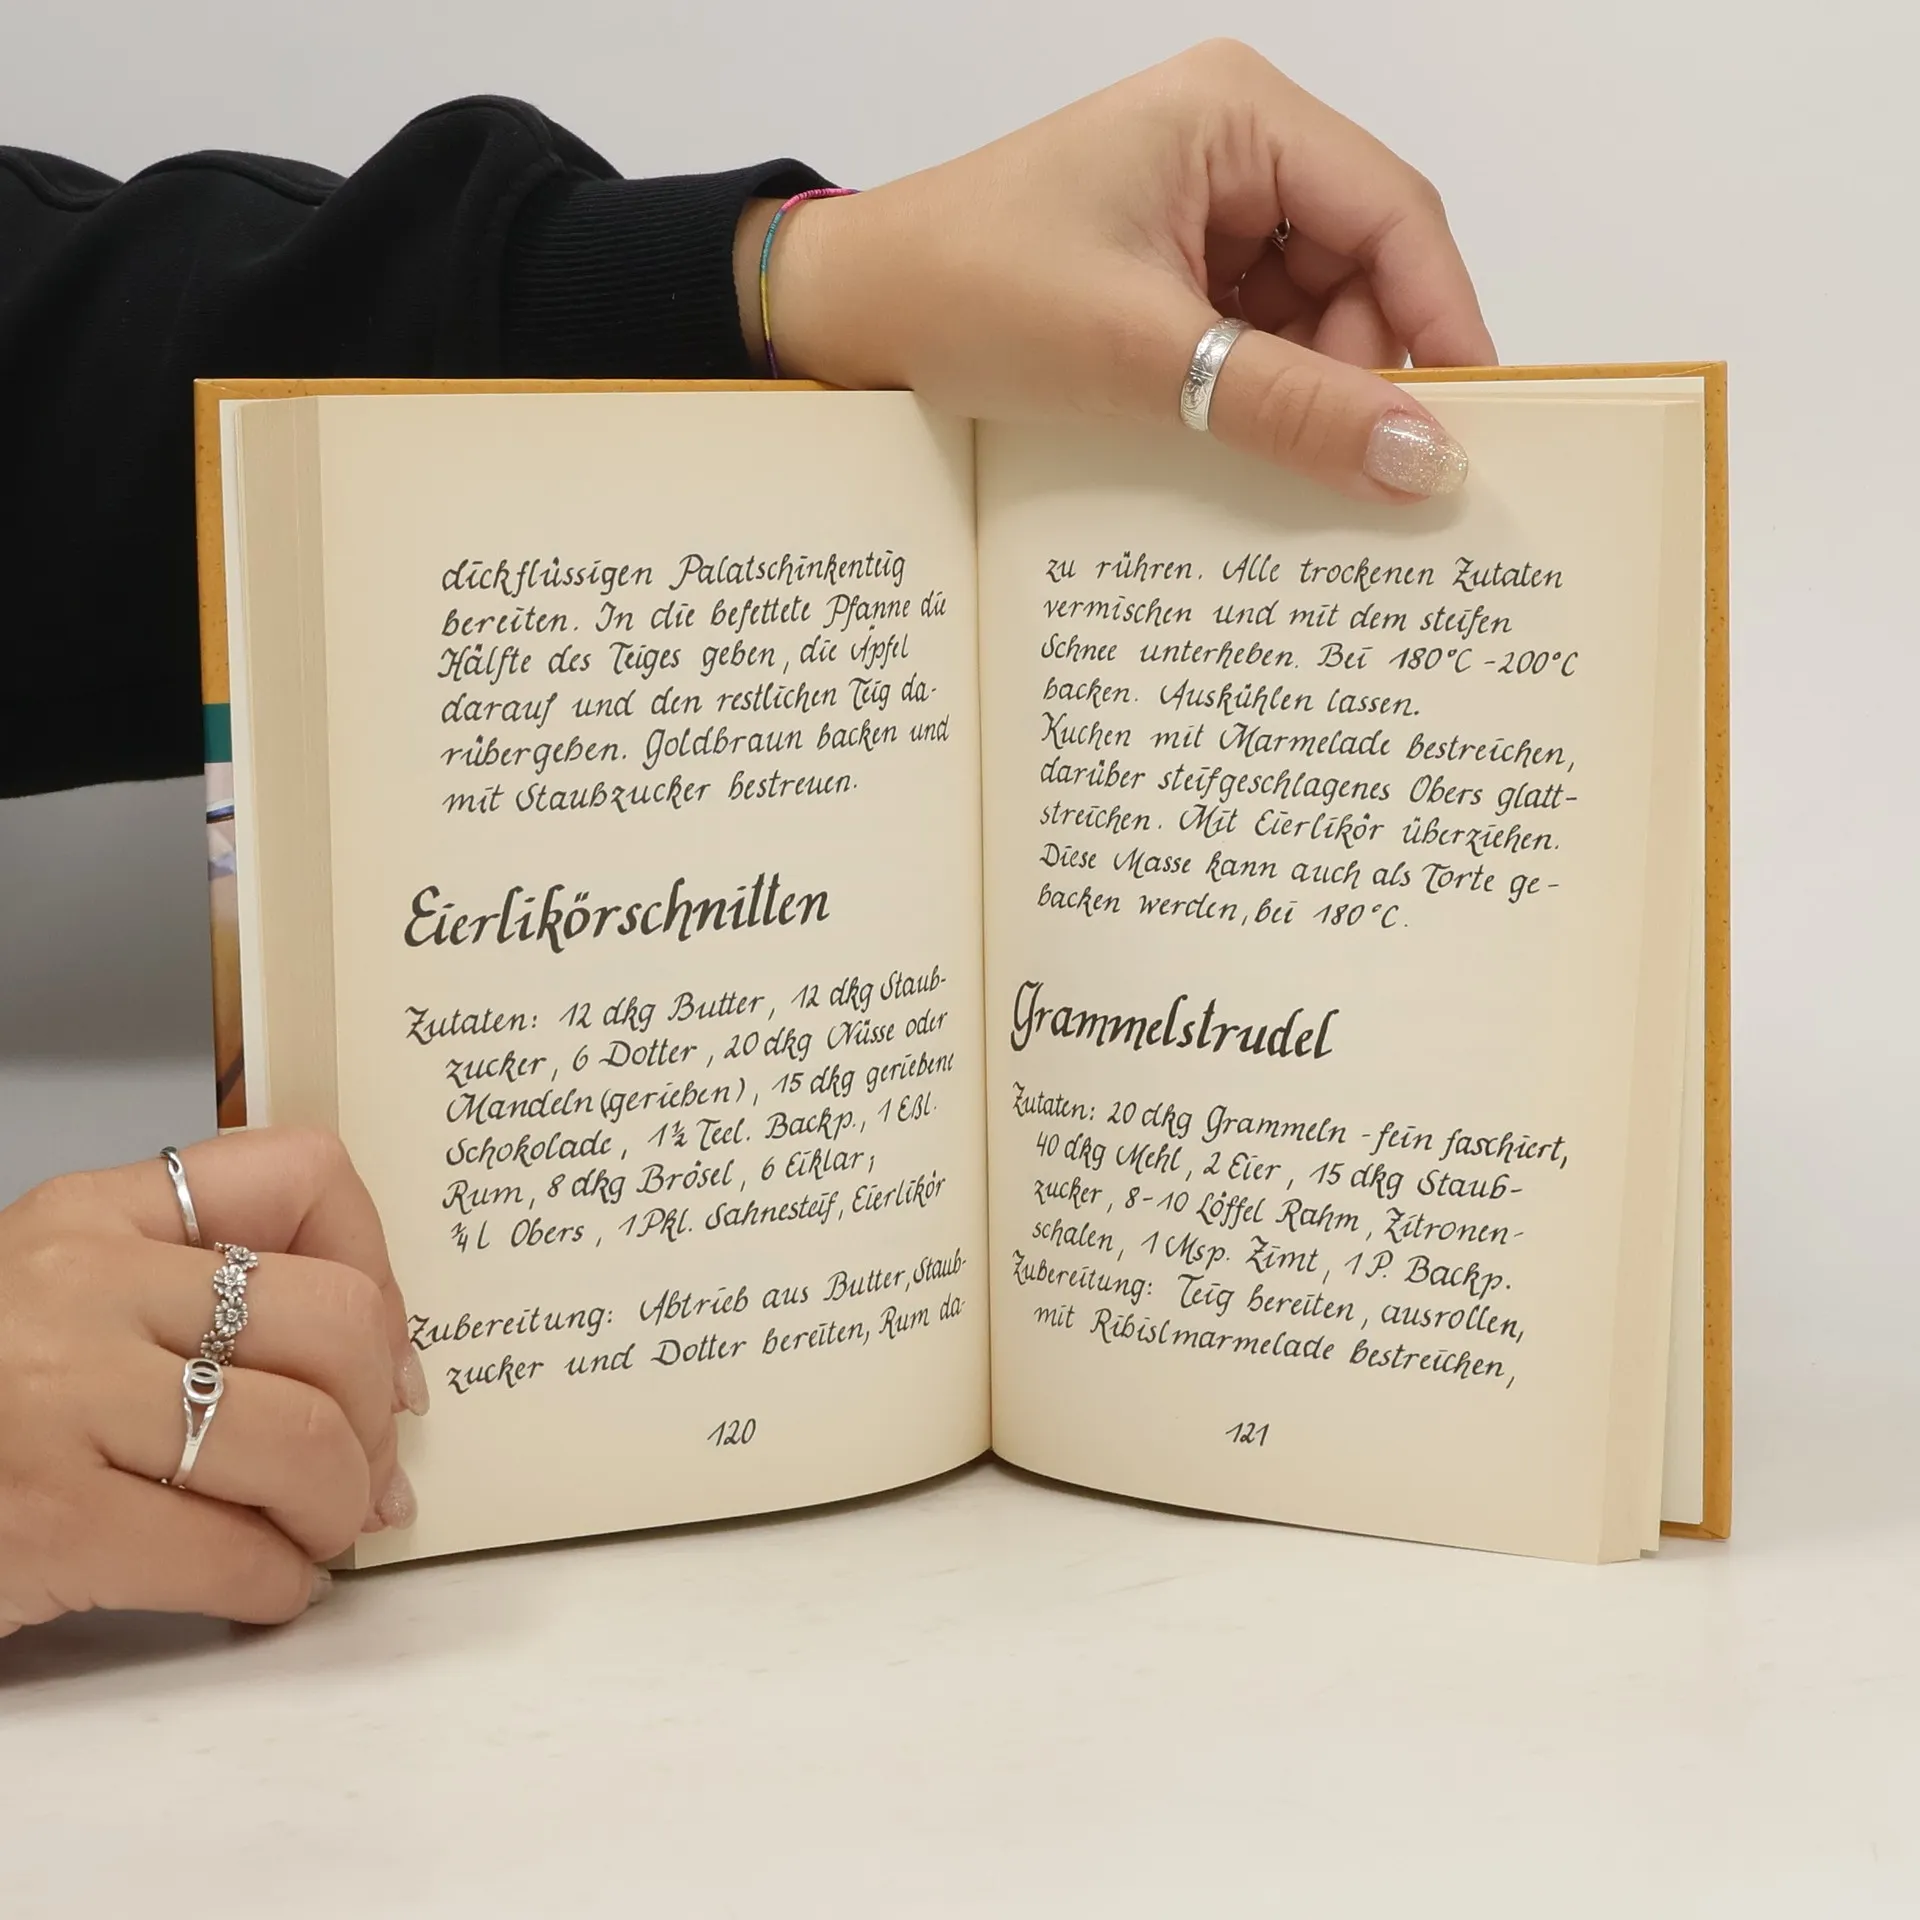 dickflüssigen Palatschinkenteig
bereiten. In die befettete Pfanne die
Hälfte des Teiges geben, die Äpfel
darauf und den restlichen Teig da-
rübergeben. Goldbraun backen und
mit Staubzucker bestreuen.
Eierlikörschnitten
Zutaten: 12 dkg Butter, 12 dkg Staub-
zucker, 6 Dotter, 20 dkg Nüsse oder
Mandeln (gerieben), 15 dkg geriebene
Schokolade, 1½ Teel. Backp., 1 Eßl.
Rum, 8 dkg Brösel, 6 Eiklar;
¾ l Obers, 1 Pkl. Sahnesteif, Eierlikör
Zubereitung: Abtrieb aus Butter, Staub-
zucker und Dotter bereiten, Rum da-
120
zu rühren. Alle trockenen Zutaten
vermischen und mit dem steifen
Schnee unterheben. Bei 180°C - 200°C
backen. Auskühlen lassen.
Kuchen mit Marmelade bestreichen,
darüber steifgeschlagenes Obers glatt-
streichen. Mit Eierlikör überziehen.
Diese Masse kann auch als Torte ge-
backen werden, bei 180°C.
Grammelstrudel
Zutaten: 20 dkg Grammeln - fein faschiert,
40 dkg Mehl, 2 Eier, 15 dkg Staub-
zucker, 8-10 Löffel Rahm, Zitronen-
schalen, 1 Msp. Zimt, 1 P. Backp.
Zubereitung: Teig bereiten, ausrollen,
mit Ribislmarmelade bestreichen,
121